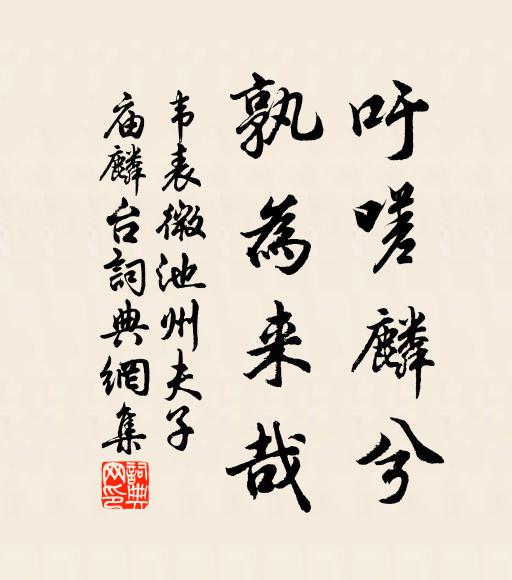 吁嗟麟兮
孰為来哉
韦表微池州夫子
庙麟台詞典網集
詞典网印